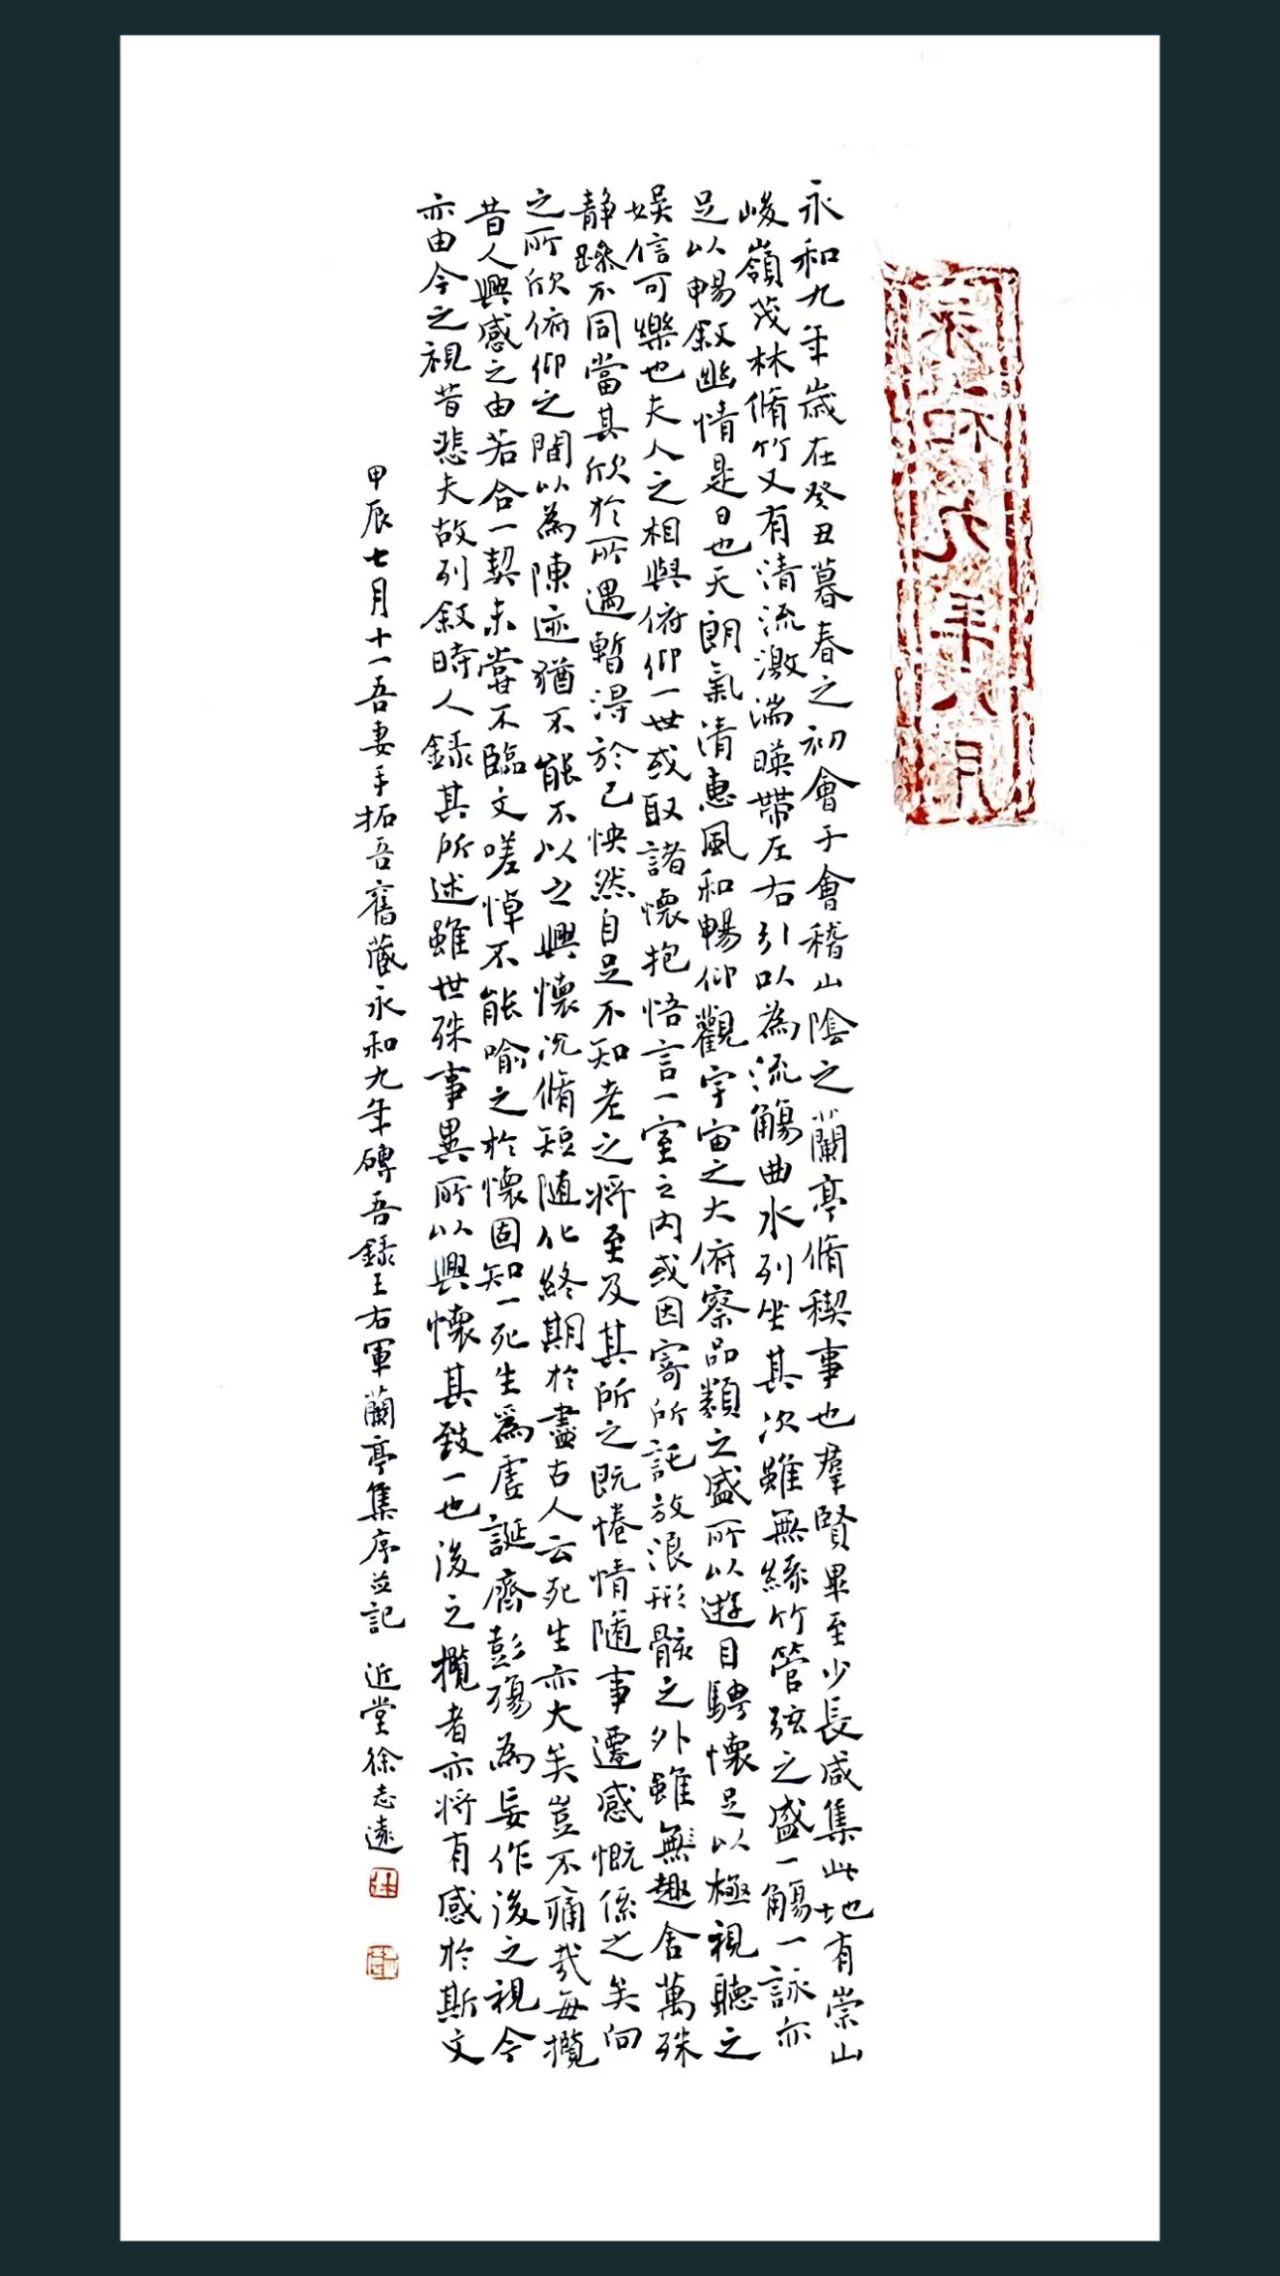 永和九年八月
永和九年歲在癸丑暮春之初會于會稽山陰之蘭亭脩稧事也羣賢畢至少長咸集此地有崇山
峻嶺茂林脩竹又有清流激湍暎帶左右引以為流觴曲水列坐其次雖無絲竹管弦之盛一觴一詠亦
足以暢敘幽情是日也天朗氣清惠風和暢仰觀宇宙之大俯察品類之盛所以遊目騁懷足以極視聽之
娛信可樂也夫人之相與俯仰一世或取諸懷抱悟言一室之內或因寄所託放浪形骸之外雖無趣舍萬殊
静躁不同當其欣於所遇暫得於己怏然自足不知老之將至及其所之既惓情隨事遷感慨係之矣向
之所欣俯仰之間以為陳迹猶不能不以之興懷況脩短隨化終期於盡古人云死生亦大矣豈不痛哉每攬
昔人興感之由若合一契未嘗不臨文嗟悼不能喻之於懷固知一死生爲虛誕齊彭殤為妄作後之視今
亦由今之視昔悲夫故列敘時人錄其所述雖世殊事異所以興懷其致一也後之攬者亦將有感於斯文
甲辰七月十一吾妻手拓吾舊藏永和九年磚吾錄王右軍蘭亭集序並記 近堂徐志遠